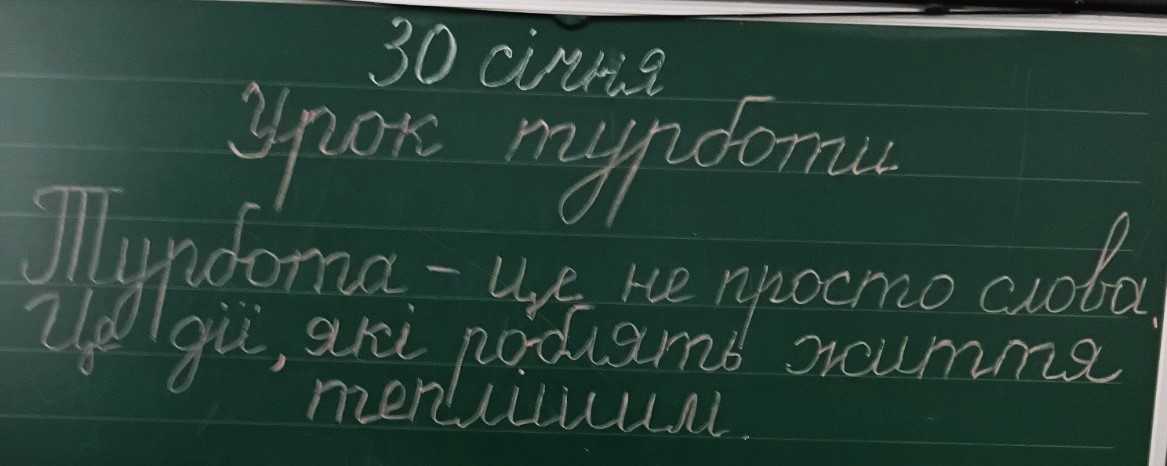 30 січня
Урок турботи
Турбота - це не просто слова,
Це дії, які роблять життя
теплішим.